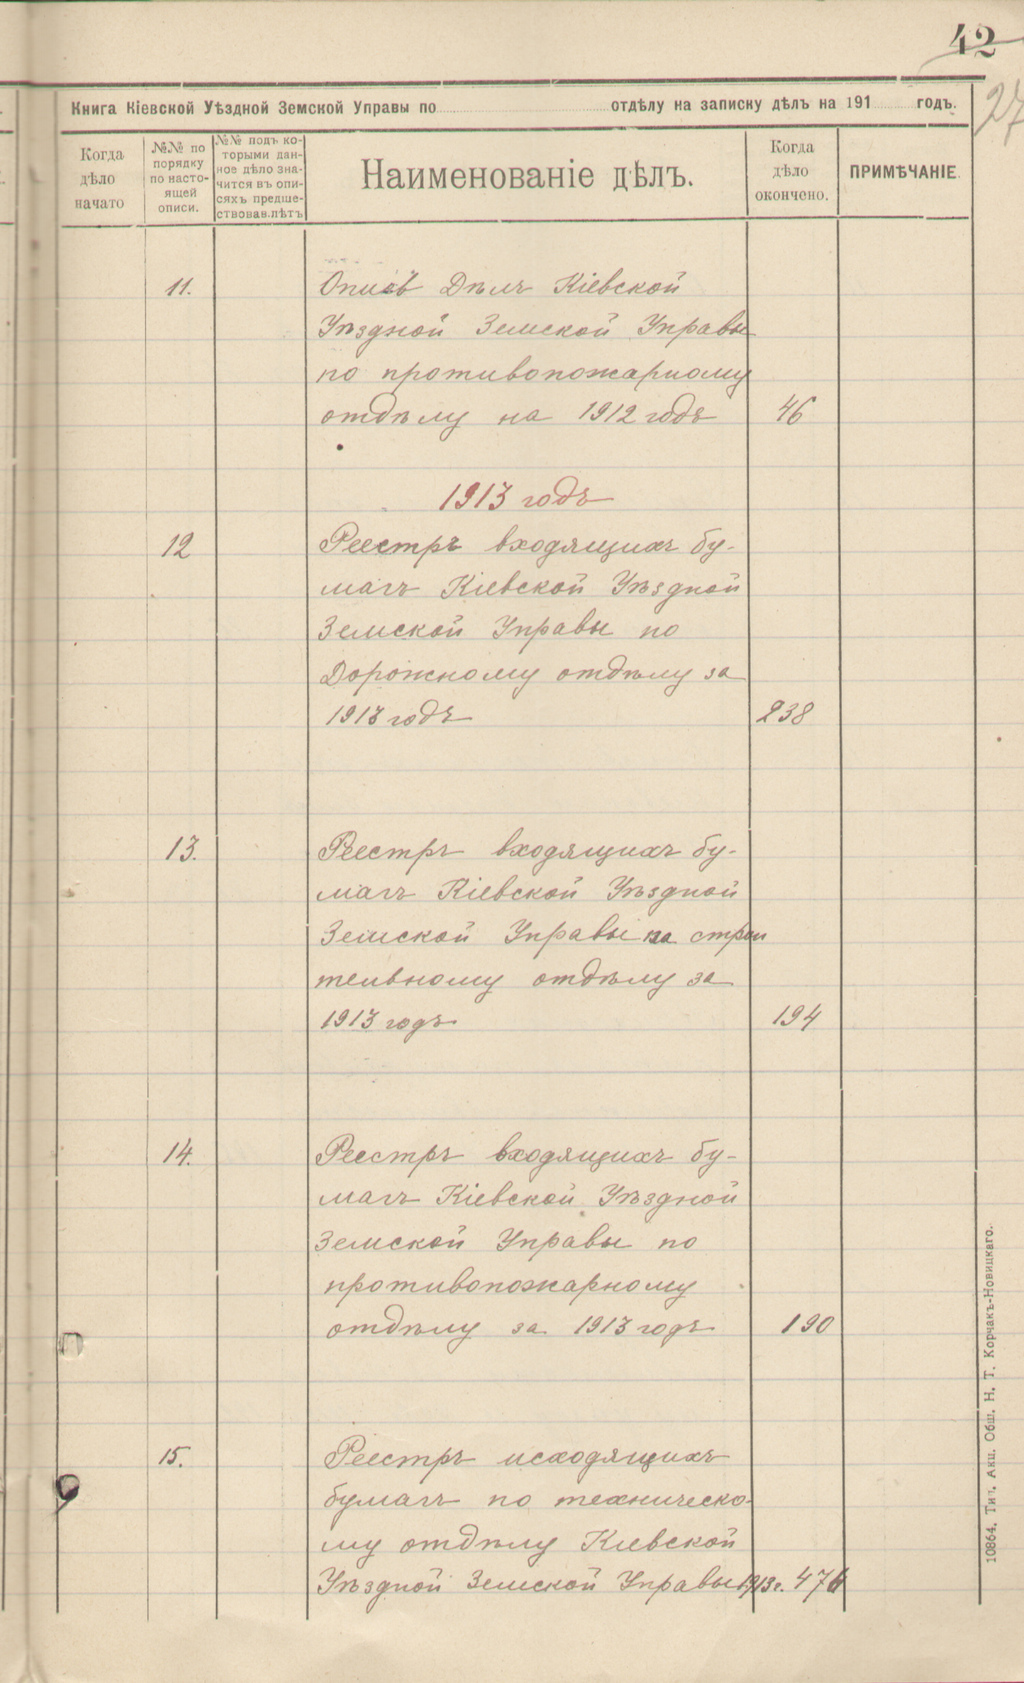 42
27
Книга Кіевской Уѣздной Земской Управы по отдѣлу на записку дѣлъ на 191 годъ.
Когда дѣло начато
№№ по порядку по насто- ящей описи.
№№ подъ ко- торыми дан- ное дѣло зна- чится въ опи- сяхъ предше- ствовав.лѣтъ
Наименованіе дѣлъ.
Когда дѣло окончено.
ПРИМѢЧАНІЕ.
11. Опись Дѣлъ Кіевской
Уѣздной Земской Управы
по противопожарному
отдѣлу на 1912 годъ 46
1913 годъ
12 Реестръ входящихъ бу-
магъ Кіевской Уѣздной
Земской Управы по
Дорожному отдѣлу за
1913 годъ 238
13. Реестръ входящихъ бу-
магъ Кіевской Уѣздной
Земской Управы по строи
тельному отдѣлу за
1913 годъ 194
14. Реестръ входящихъ бу-
магъ Кіевской Уѣздной
Земской Управы по
противопожарному
отдѣлу за 1913 годъ 190
15. Реестръ исходящихъ
бумагъ по техническо-
му отдѣлу Кіевской
Уѣздной Земской Управы 1913г. 476
10864. Тип. Акц. Общ. Н. Т. Корчакъ-Новицкаго.